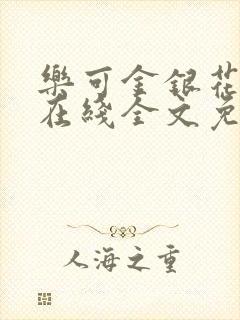 樂可金銀花
在綫全文免
人海之重